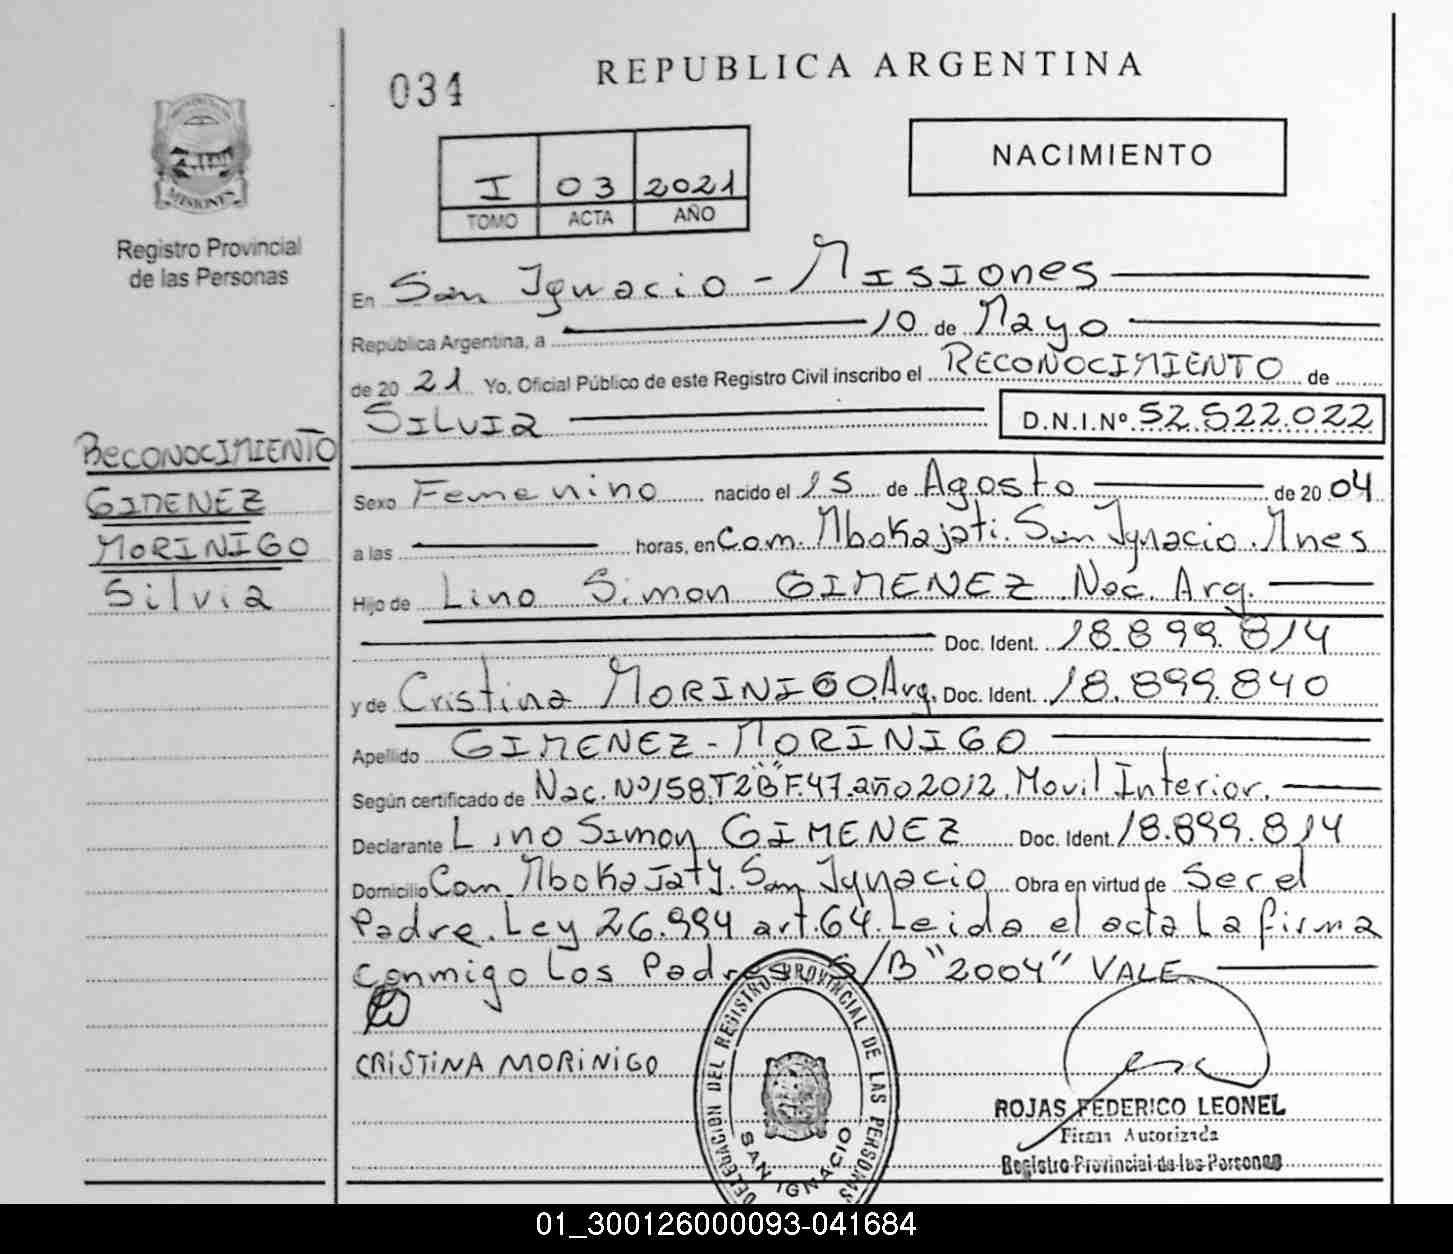 034
REPUBLICA ARGENTINA
NACIMIENTO
I 03 2021
TOMO ACTA AÑO
MISIONES
Registro Provincial
de las Personas
En San Ignacio - Misiones
República Argentina, a 10 de Mayo
de 20 21 Yo, Oficial Público de este Registro Civil inscribo el RECONOCIMIENTO de
SILVIA D.N.I.Nº 52.522.022
RECONOCIMIENTO
GIMENEZ
MORINIGO
Silvia
Sexo Femenino nacido el 15 de Agosto de 20 04
a las horas, en Com. Mbokajati. San Ignacio. Mnes
Hijo de Lino Simon GIMENEZ Nac. Arg.
Doc. Ident. 18.899.814
y de Cristina MORINIGO Arg. Doc. Ident. 18.899.840
Apellido GIMENEZ - MORINIGO
Según certificado de Nac. Nº158.T2"B"F.47.año2012.Movil Interior.
Declarante Lino Simon GIMENEZ Doc. Ident. 18.899.814
Domicilio Com. Mboka Jaty. San Ignacio Obra en virtud de Ser el
Padre. Ley 26.994 art.64. Leida el acta La firma
conmigo Los Padres S/B "2004" VALE
CRISTINA MORINIGO
DELEGACIÓN DEL REGISTRO PROVINCIAL DE LAS PERSONAS
SAN IGNACIO
ROJAS FEDERICO LEONEL
Firma Autorizada
Registro Provincial de las Personas
01_300126000093-041684